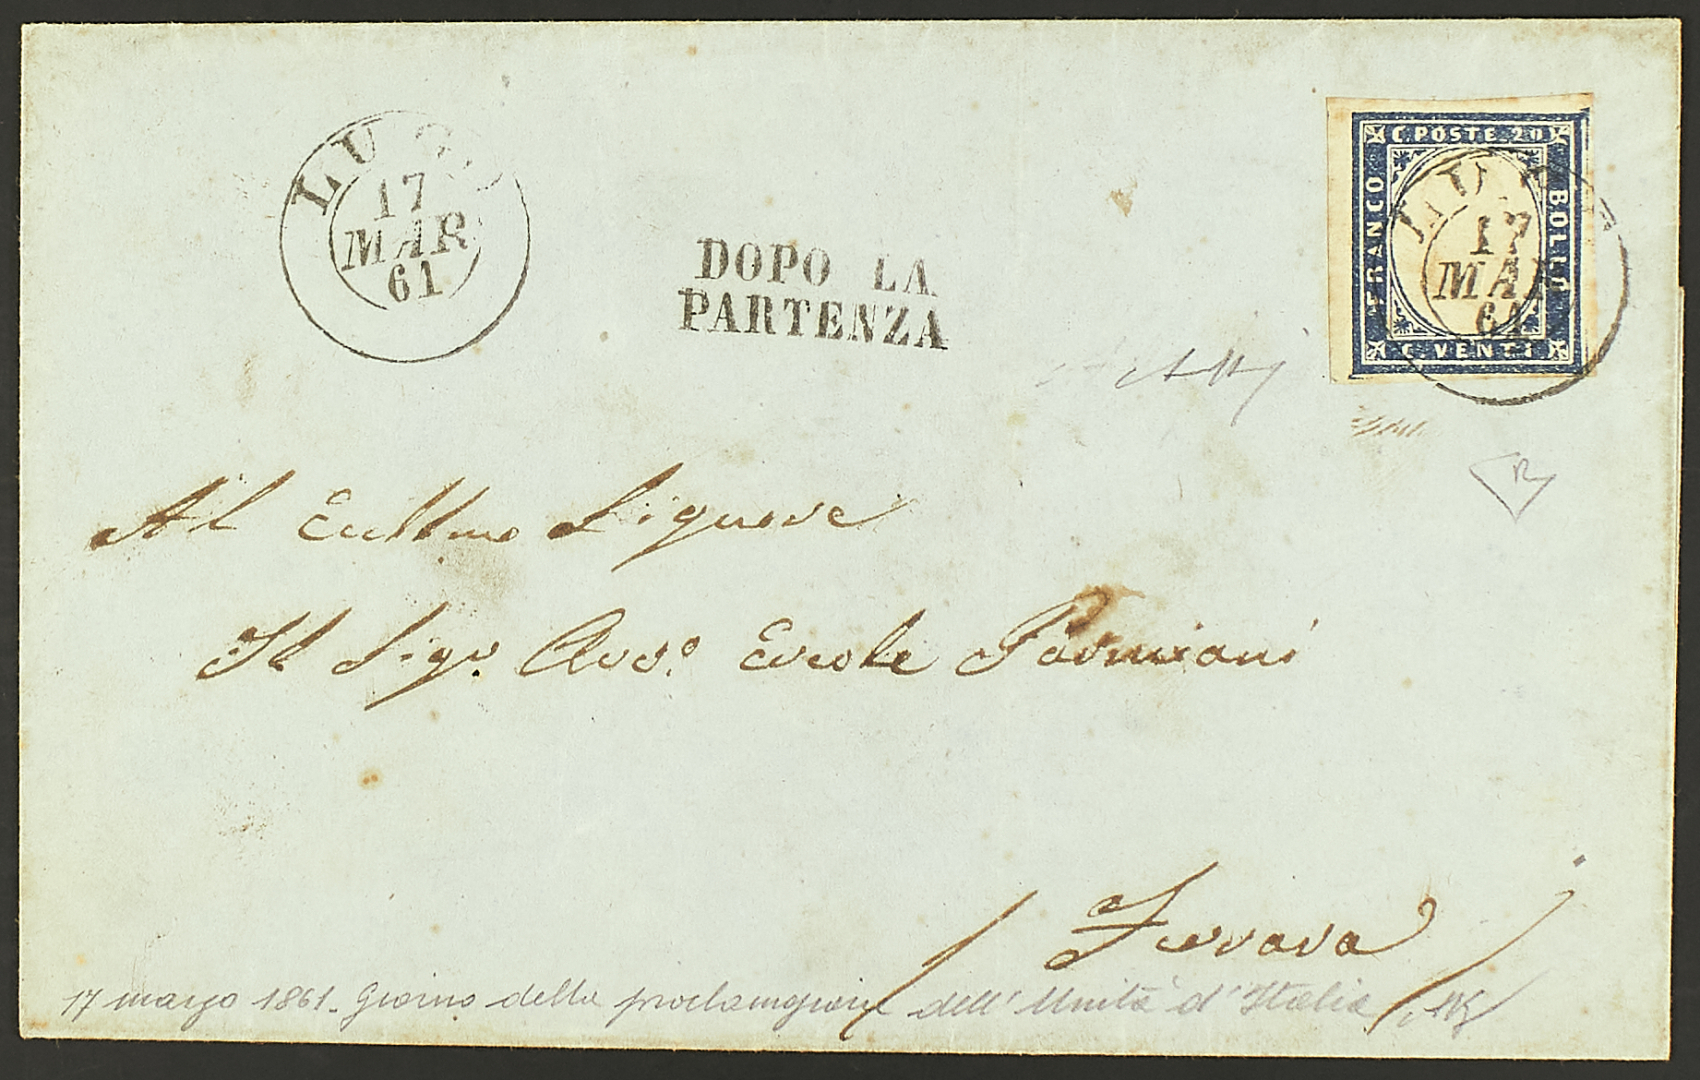 LUGO
17
MAR
61
DOPO LA
PARTENZA
C. POSTE 20
FRANCO
BOLLO
C. VENTI
LUGO
17
MAR
61
Al Signore
Il Sigr. Avvo. Ercole
Ferrara
17 marzo 1861. Giorno della proclamazione dell'Unità d'Italia